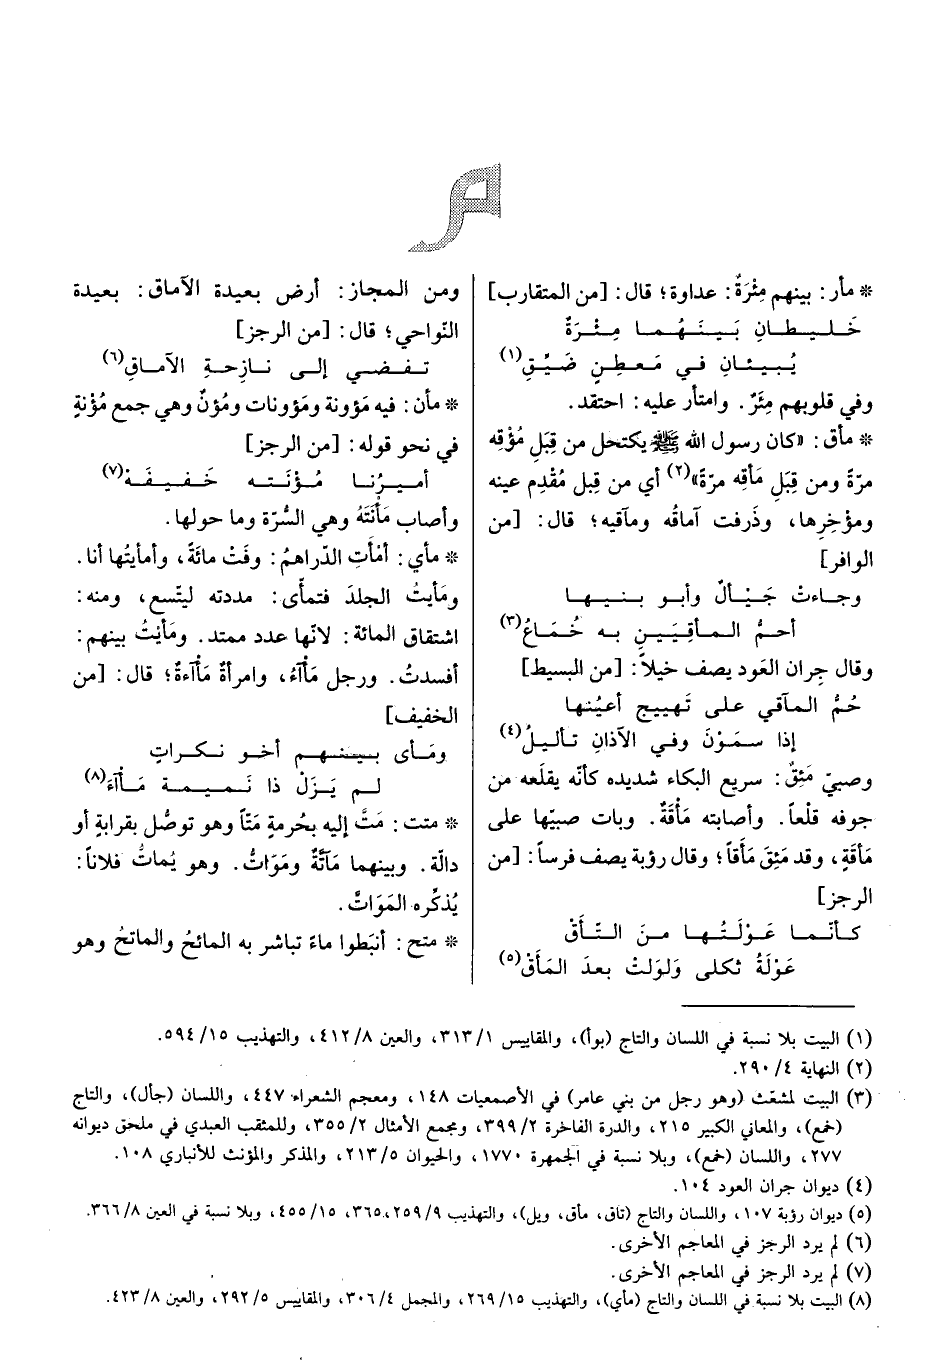 م
* مأر: بينهم مِئْرَةٌ: عداوة؛ قال: [من المتقارب]
خَـلـيـطـانِ بَـيـنَـهُـمـا مِـئـرَةٌ
يُـبـيـئـانِ في مَـعـطِـنٍ ضَـيِّـقِ(١)
وفي قلوبهم مِئَرٌ. وامتأر عليه: احتقد.
* مأق: «كان رسول الله ﷺ يكتحل من قِبَلِ مُؤْقِه
مرّةً ومن قِبَلِ مَأقِه مرّةً»(٢) أي من قِبل مُقْدِم عينه
ومؤخِرها، وذَرفت آماقُه ومآقيه؛ قال: [من
الوافر]
وجـاءتْ جَـيْـألٌ وأبـو بـنـيـهـا
أحـمُّ الـمـأقِـيَـيـنِ بـه خُـمَـاعُ(٣)
وقال جِران العَود يصف خيلاً: [من البسيط]
حُـمُّ الـمـآقي على تَهييج أعيُنها
إذا سـمَـوْنَ وفـي الآذانِ تـأليـلُ(٤)
وصبيّ مَئِقٌ: سريع البكاء شديده كأنّه يقلَعه من
جوفه قلْعاً. وأصابته مَأْقَةٌ. وبات صبيّها على
مَأقَةٍ، وقد مَئِقَ مَأَقاً؛ وقال رؤبة يصف فرساً: [من
الرجز]
كـأنّـمـا عَـوْلَـتُـهـا مـنَ الـتَّـأَقْ
عَوْلَةُ ثكلى وَلوَلتْ بعدَ المَأَقْ(٥)
ومن المجاز: أرض بعيدة الآماق: بعيدة
النّواحي؛ قال: [من الرجز]
تـفـضـي إلـى نـازِحـةِ الآمـاقِ(٦)
* مأن: فيه مَؤونة ومَؤونات ومُؤَنٌ وهي جمع مُؤْنةٍ
في نحو قوله: [من الرجز]
أمـيـرُنـا مُـؤْنَـتـه خَـفـيـفَـهْ(٧)
وأصاب مَأْنَتَهُ وهي السُّرّة وما حولها.
* مأي: أَمْأَتِ الدّراهمُ: وفَتْ مائَةً، وأمأيتُها أنا.
ومَأيتُ الجلدَ فتمأّى: مددته ليتّسع، ومنه:
اشتقاق المائة: لأنّها عدد ممتد. ومَأَيْتُ بينهم:
أفسدتُ. ورجل مَأْآءٌ، وامرأةٌ مَأْآءةٌ؛ قال: [من
الخفيف]
ومَـأى بـيـنـهـم أخـو نـكـراتٍ
لـم يَـزَلْ ذا نَـمـيـمـة مَـأْآءَ(٨)
* متت: مَتَّ إليه بحُرمةٍ مَتّاً وهو توصُّل بقرابةٍ أو
دالّة. وبينهما مَاتَّةٌ ومَوَاتُّ. وهو يُماتُّ فلاناً:
يُذكِّره المَوَاتَّ.
* متح: أنبَطوا ماءً تباشر به المائحُ والماتحُ وهو
(١) البيت بلا نسبة في اللسان والتاج (بوأ)، والمقاييس ١/ ٣١٣، والعين ٨/ ٤١٢، والتهذيب ١٥/ ٥٩٤.
(٢) النهاية ٤/ ٢٩٠.
(٣) البيت لمشعّث (وهو رجل من بني عامر) في الأصمعيات ١٤٨، ومعجم الشعراء ٤٤٧، واللسان (جأل)، والتاج
(خمع)، والمعاني الكبير ٢١٥، والدرة الفاخرة ٢/ ٣٩٩، ومجمع الأمثال ٢/ ٣٥٥، وللمثقب العبدي في ملحق ديوانه
٢٧٧، واللسان (خمع)، وبلا نسبة في الجمهرة ١٧٧٠، والحيوان ٥/ ٢١٣، والمذكر والمؤنث للأنباري ١٠٨.
(٤) ديوان جران العود ١٠٤.
(٥) ديوان رؤبة ١٠٧، واللسان والتاج (تاق، مأق، ويل)، والتهذيب ٩/ ٢٥٩، ٣٦٥، ١٥/ ٤٥٥، وبلا نسبة في العين ٨/ ٣٦٦.
(٦) لم يرد الرجز في المعاجم الأخرى.
(٧) لم يرد الرجز في المعاجم الأخرى.
(٨) البيت بلا نسبة في اللسان والتاج (مأي)، والتهذيب ١٥/ ٢٦٩، والمجمل ٤/ ٣٠٦، والمقاييس ٥/ ٢٩٢، والعين ٨/ ٤٢٣.